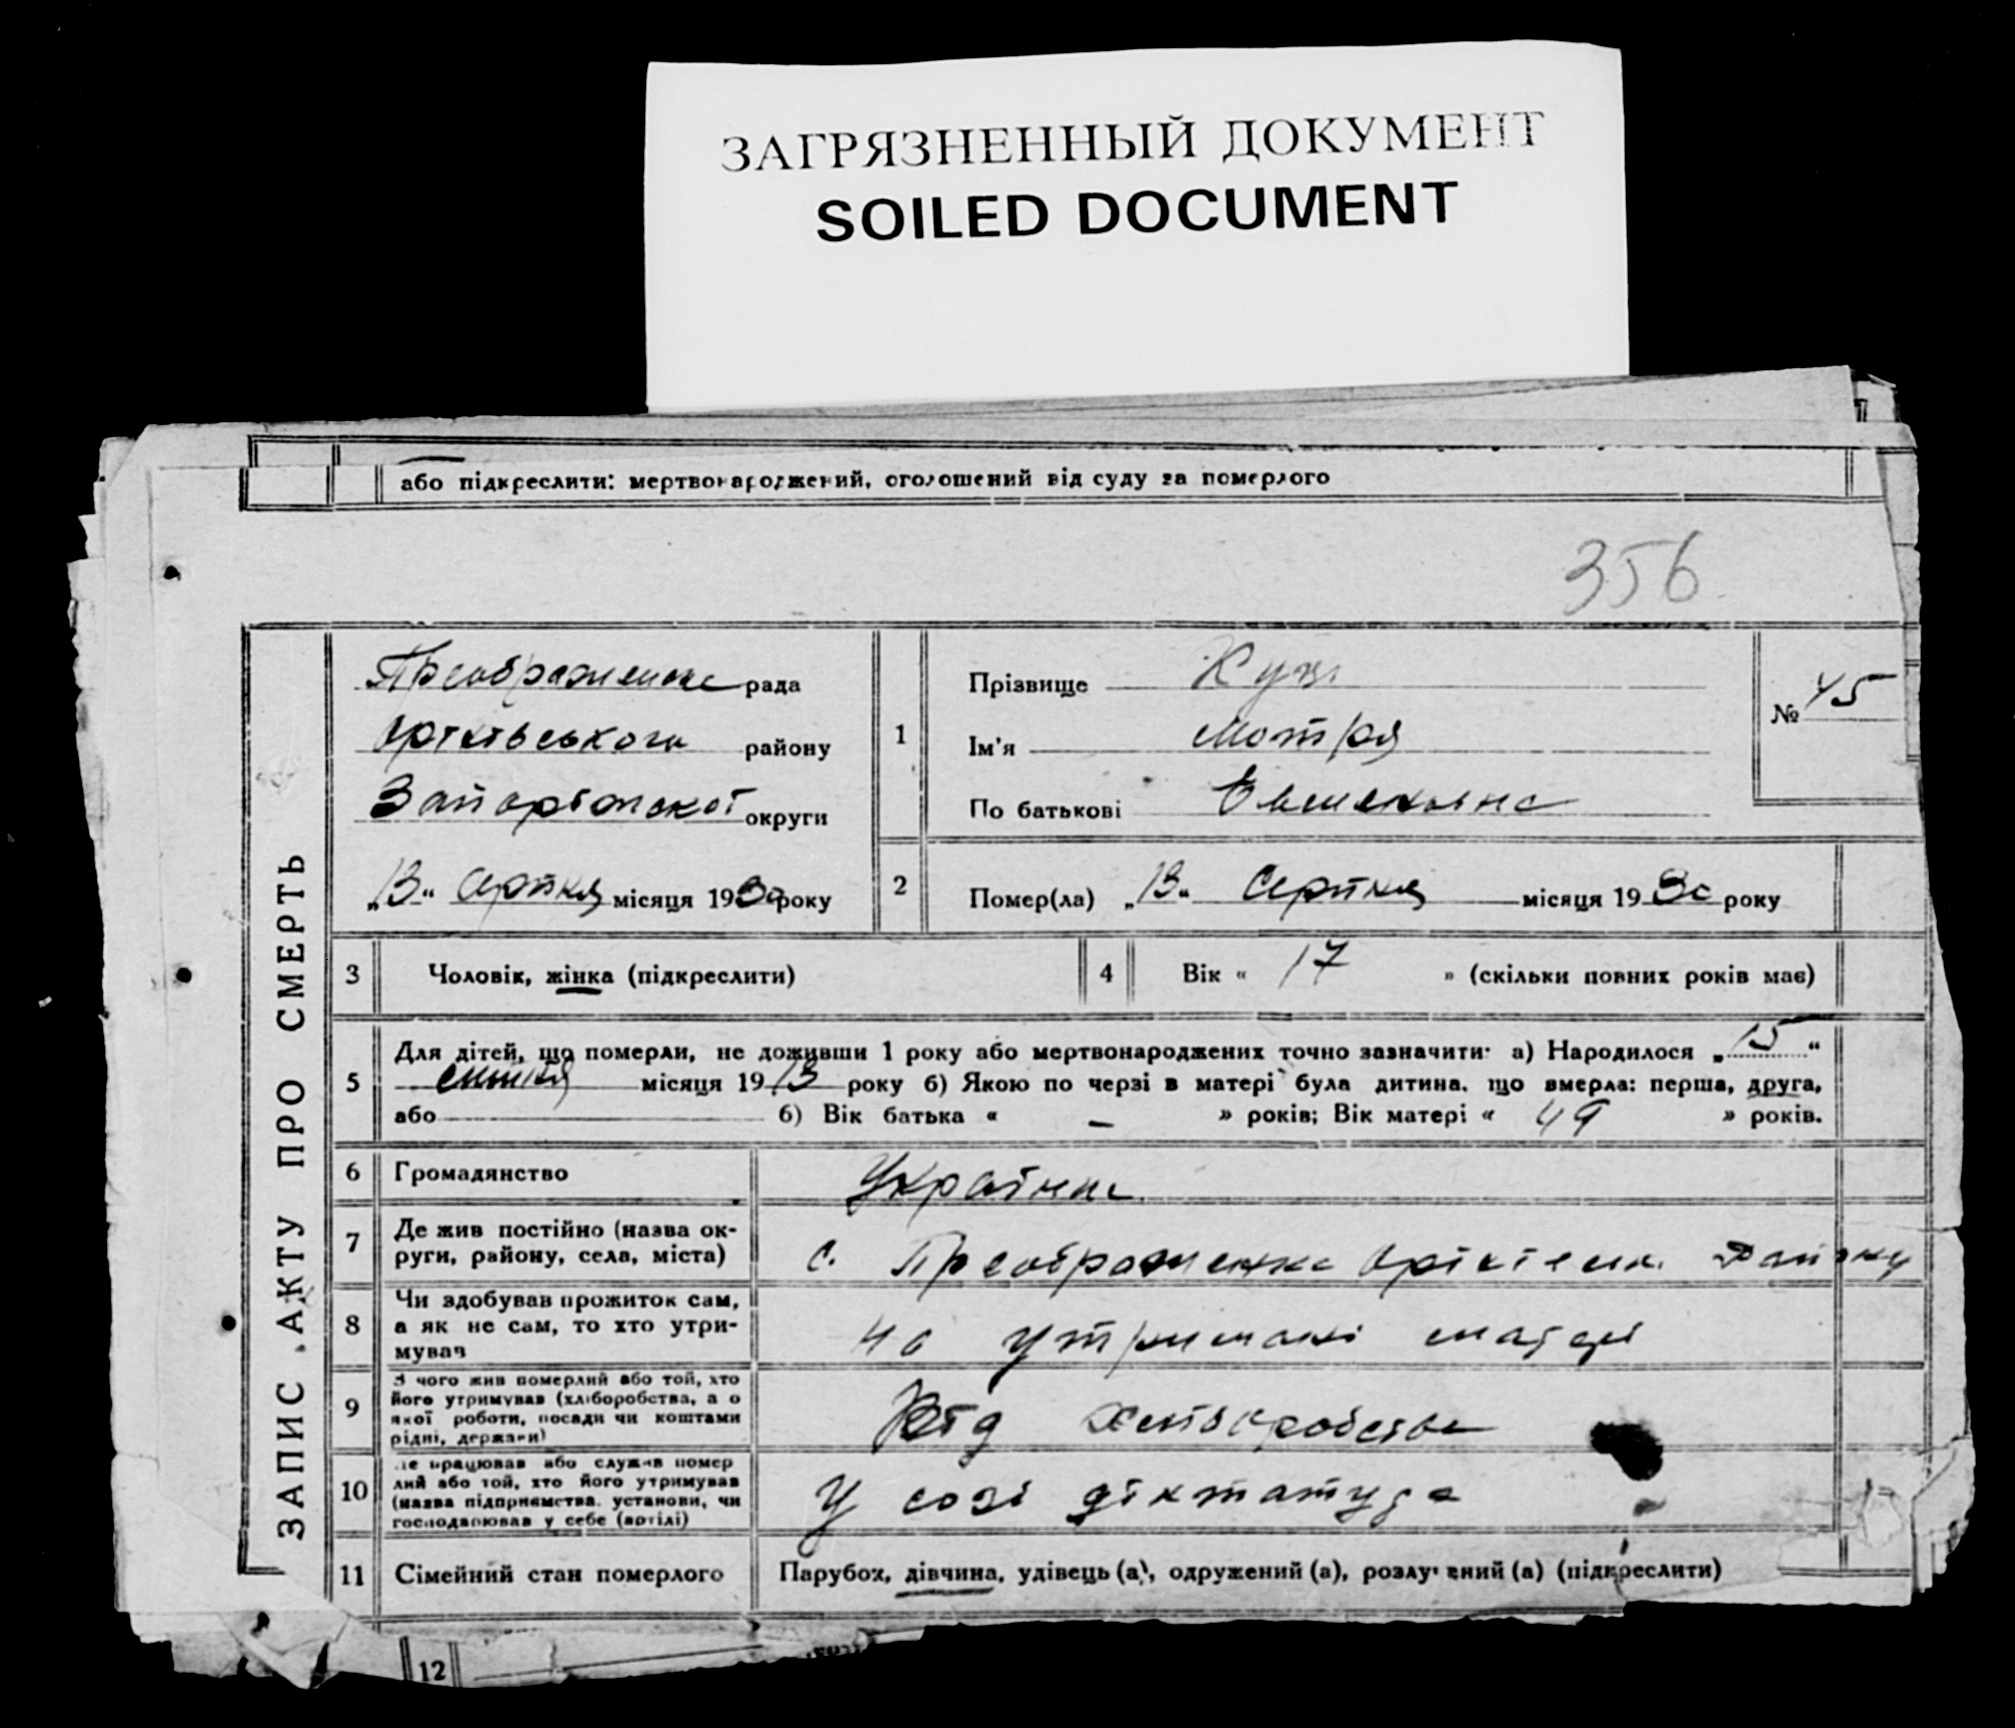 ЗАГРЯЗНЕННЫЙ ДОКУМЕНТ
SOILED DOCUMENT
або підкреслити: мертвонароджений, оголошений від суду за померлого
356
ЗАПИС АКТУ ПРО СМЕРТЬ
рада
району
округи
„13“ Серпня місяця 1930 року
1
Прізвище
Ім'я Мотря
По батькові
№ 45
2
Помер(ла) „13“ Серпня місяця 1930 року
3
Чоловік, жінка (підкреслити)
4
Вік « 17 » (скільки повних років має)
5
Для дітей, що померли, не доживши 1 року або мертвонароджених точно зазначити: а) Народилося „15“
місяця 1913 року б) Якою по черзі в матері була дитина, що вмерла: перша, друга,
або б) Вік батька « – » років; Вік матері « 49 » років.
6
Громадянство
7
Де жив постійно (назва ок-
руги, району, села, міста)
с. Преображенка Району
8
Чи здобував прожиток сам,
а як не сам, то хто утри-
мував
на матері
9
З чого жив померлий або той, хто
його утримував (хліборобства, а о
якої роботи, посади чи коштами
рідні, держави)
Від
10
Де працював або служив помер
лий або той, хто його утримував
(назва підприємства, установи, чи
господарював у себе (артілі)
У созі діктатура
11
Сімейний стан померлого
Парубок, дівчина, удівець (а), одружений (а), розлучений (а) (підкреслити)
12